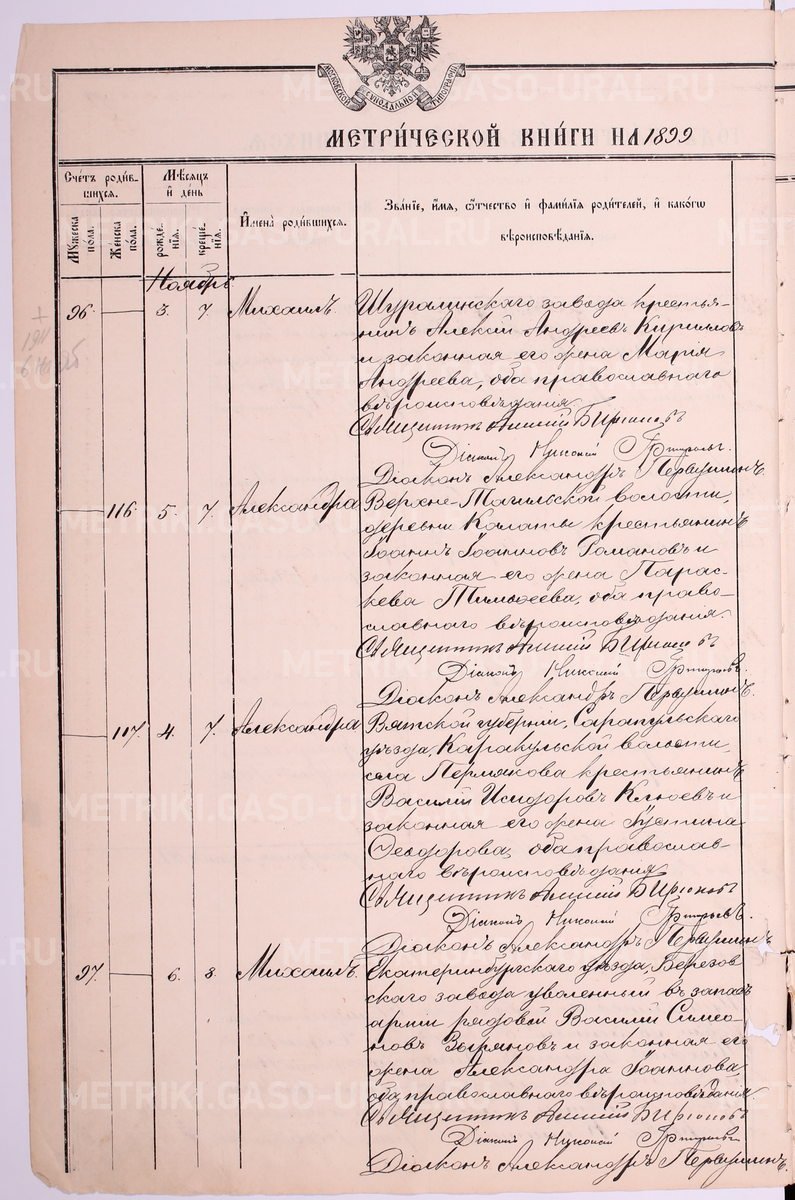 МОСКОВСКОЙ СѴНОДАЛЬНОЙ ТИПОГРАФІИ
МЕТРИ́ЧЕСКОЙ КНИ́ГИ НА 1899
Сче́тъ роди́вшихся.
Мѣ́сяцъ и҆ де́нь
Мꙋ́жеска по́ла.
Же́нска по́ла.
рожде́нїѧ.
креще́нїѧ.
И҆мена̀ роди́вшихсѧ.
Зва́нїе, и҆́мѧ, ѻ҆́тчество и҆ фами́лїѧ роди́телей, и҆ како́гѡ
вѣроисповѣ́данїѧ.
Ноябрь
96. 3. 7. Михаилъ. Шуралинскаго завода крестья-
нинъ Алексій Андреевъ Кирилловъ
и законная его жена Марія
Андреева, оба православнаго
вѣроисповѣданія.
Священникъ Алексій Бирюковъ
Діаконъ Николай Григорьевъ.
Діаконъ Александръ Первушинъ.
116. 5. 7. Александра Верхне-Тагильской волости,
деревни Калаты крестьянинъ
Іоаннъ Іоанновъ Романовъ и
законная его жена Парас-
кева Тимоѳеева, оба право-
славнаго вѣроисповѣданія.
Священникъ Алексій Бирюковъ
Діаконъ Николай Григорьевъ.
Діаконъ Александръ Первушинъ.
117. 4. 7. Александра Вятской губерніи, Сарапульскаго
уѣзда, Каракульской волости,
села Пермякова крестьянинъ
Василій Исидоровъ Клюевъ и
законная его жена Іустина
Ѳеодорова, оба православ-
наго вѣроисповѣданія
Священникъ Алексій Бирюковъ
Діаконъ Николай Григорьевъ.
Діаконъ Александръ Первушинъ
97. 6. 8. Михаилъ. Екатеринбургскаго уѣзда, Березов
скаго завода уволенный въ запасъ
арміи рядовой Василій Симео-
новъ Зыряновъ и законная его
жена Александра Іоаннова,
оба православнаго вѣроисповѣданія
Священникъ Алексій Бирюковъ
Діаконъ Николай Григорьевъ
Діаконъ Александръ Первушинъ.
METRIKI.GASO-URAL.RU